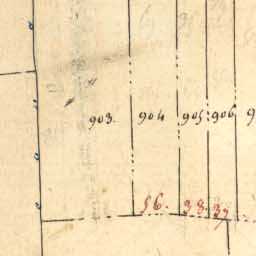 903. 904 905 906
56. 38. 37